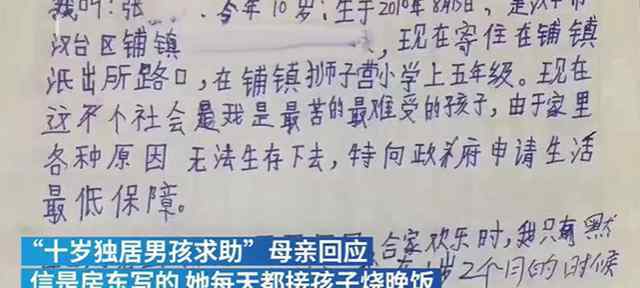 我叫:张 . 今年10岁:生于2010年8月6日, 是汉中市
汉台区铺镇 ,现在寄住在铺镇
派出所路口,在铺镇狮子营小学上五年级。现在
这不个社会是我是最苦的最难受的孩子,由于家里
各种原因 无法生存下去,特向政府申请生活
最低保障。
合家欢乐时,我只有默
岁2个月的时候
“十岁独居男孩求助”母亲回应
信是房东写的 她每天都接孩子烧晚饭